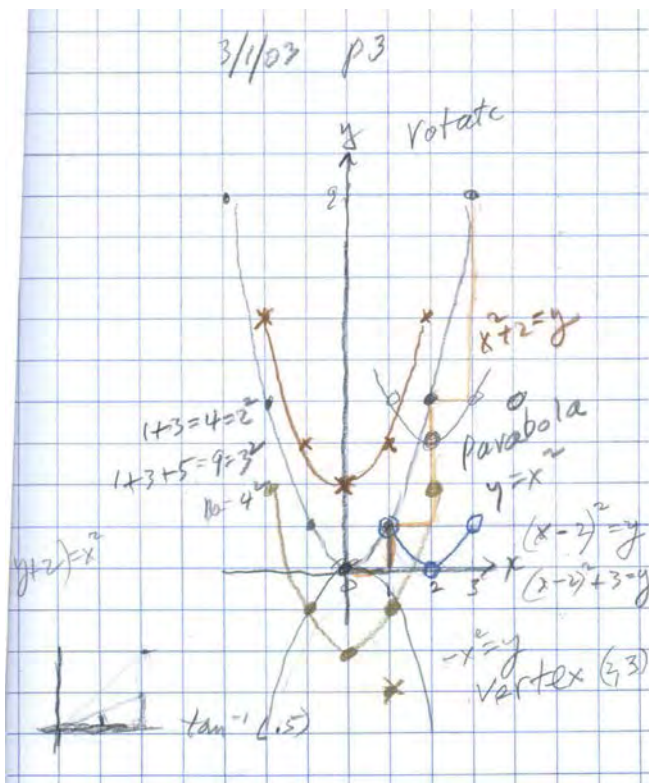 3/1/03 p3
rotate
y
9
x²+2=y
1+3=4=2²
1+3+5=9=3²
=4²
parabola
y=x²
(x-2)²=y
y+2)=x²
x
0
2
3
(x-2)²+3=y
-x²=y
vertex (2,3)
tan⁻¹(.5)